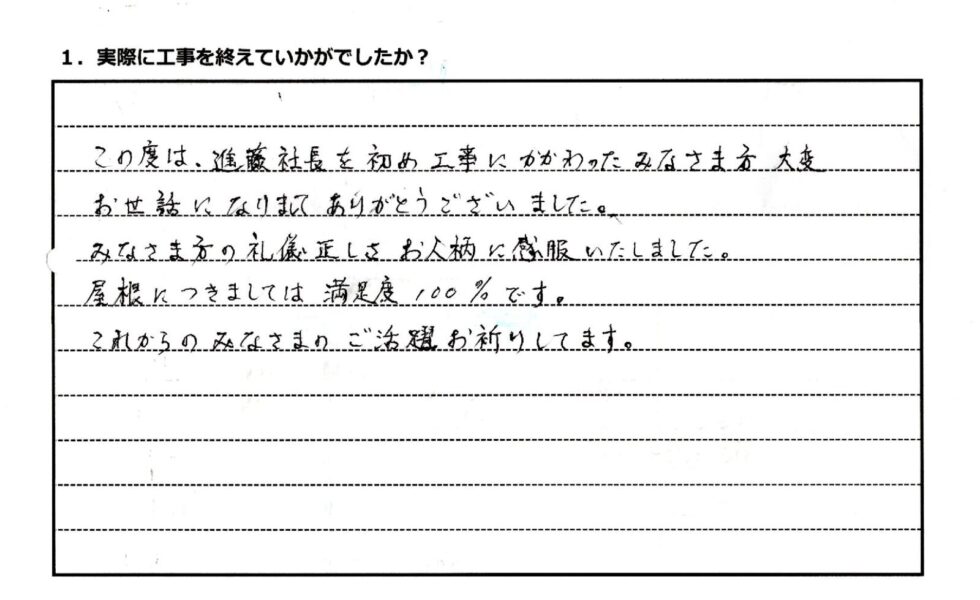 1. 実際に工事を終えていかがでしたか？
この度は、進藤社長を初め工事にかかわったみなさま方 大変
お世話になりまして ありがとうございました。
みなさま方の礼儀正しさ お人柄に感服いたしました。
屋根につきましては 満足度100%です。
これからのみなさまの ご活躍お祈りしてます。